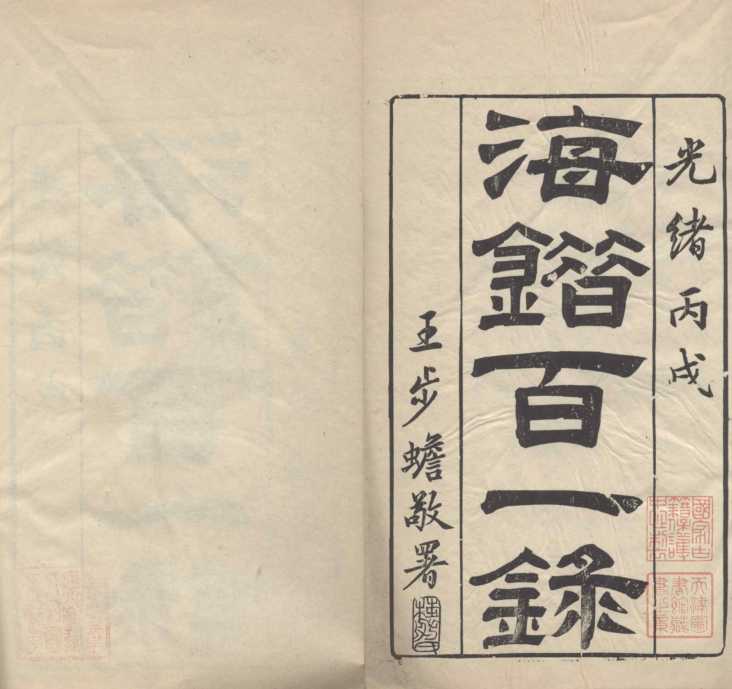 光緒丙戌
海錯百一錄
王步蟾敬署